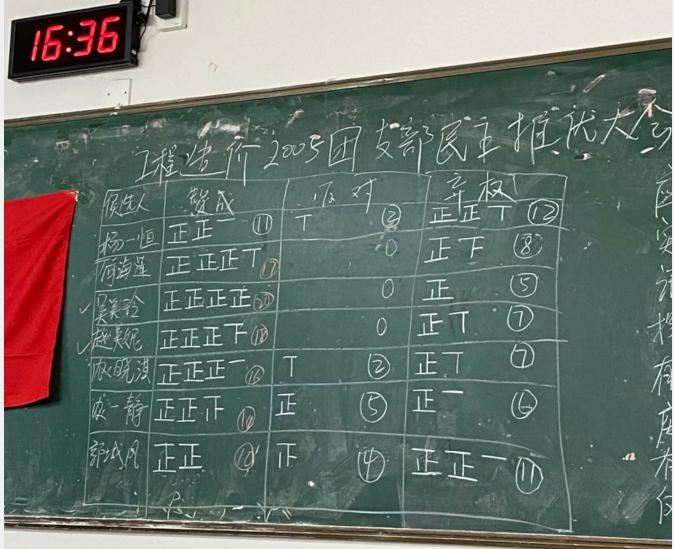 16:36
工程造价2005团支部民主推优大会
候选人 赞成 反对 弃权
杨一恒 正正一 ⑪ 丅 ② 正正丅 ⑫
何海星 正正正丅 ⑰ 0 正下 ⑧
吴美玲 正正正正 ⑳ 0 正 ⑤
赵美妮 正正正下 ⑱ 0 正丅 ⑦
晓淇 正正正一 ⑯ 丅 ② 正丅 ⑦
一静 正正正 正 ⑤ 正一 ⑥
郭城风 正正 ⑩ 正 ④ 正正一 ⑪